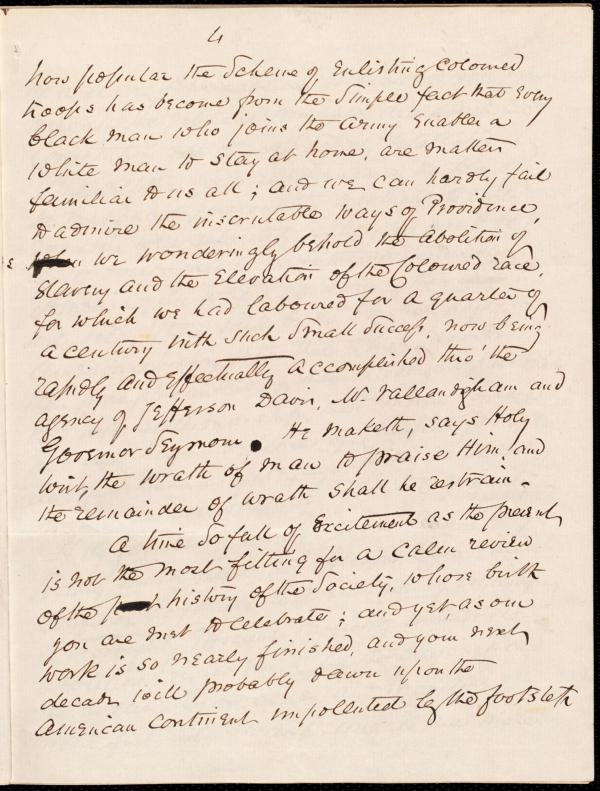 4
how popular the Scheme of Enlisting Coloured
troops has become from the Simple fact that Every
black man who joins the army Enables a
white man to stay at home, are matters
familiar to us all; and we can hardly fail
to admire the inscrutable ways of Providence,
as we wonderingly behold the abolition of
Slavery and the Elevation of the Coloured race,
for which we had laboured for a quarter of
a century with such Small Success, now being
rapidly and Effectually accomplished thro' the
agency of Jefferson Davis, Mr Vallandigham and
Governor Seymour. He maketh, says Holy
Writ, the wrath of man to praise Him, and
the remainder of wrath shall he restrain.
A time So full of Excitement as the present
is not the most fitting for a calm review
of the history of the Society, whose birth
you are met to celebrate; and yet, as our
work is so nearly finished, and your next
decade will probably dawn upon the
American Continent unpolluted by the footsteps